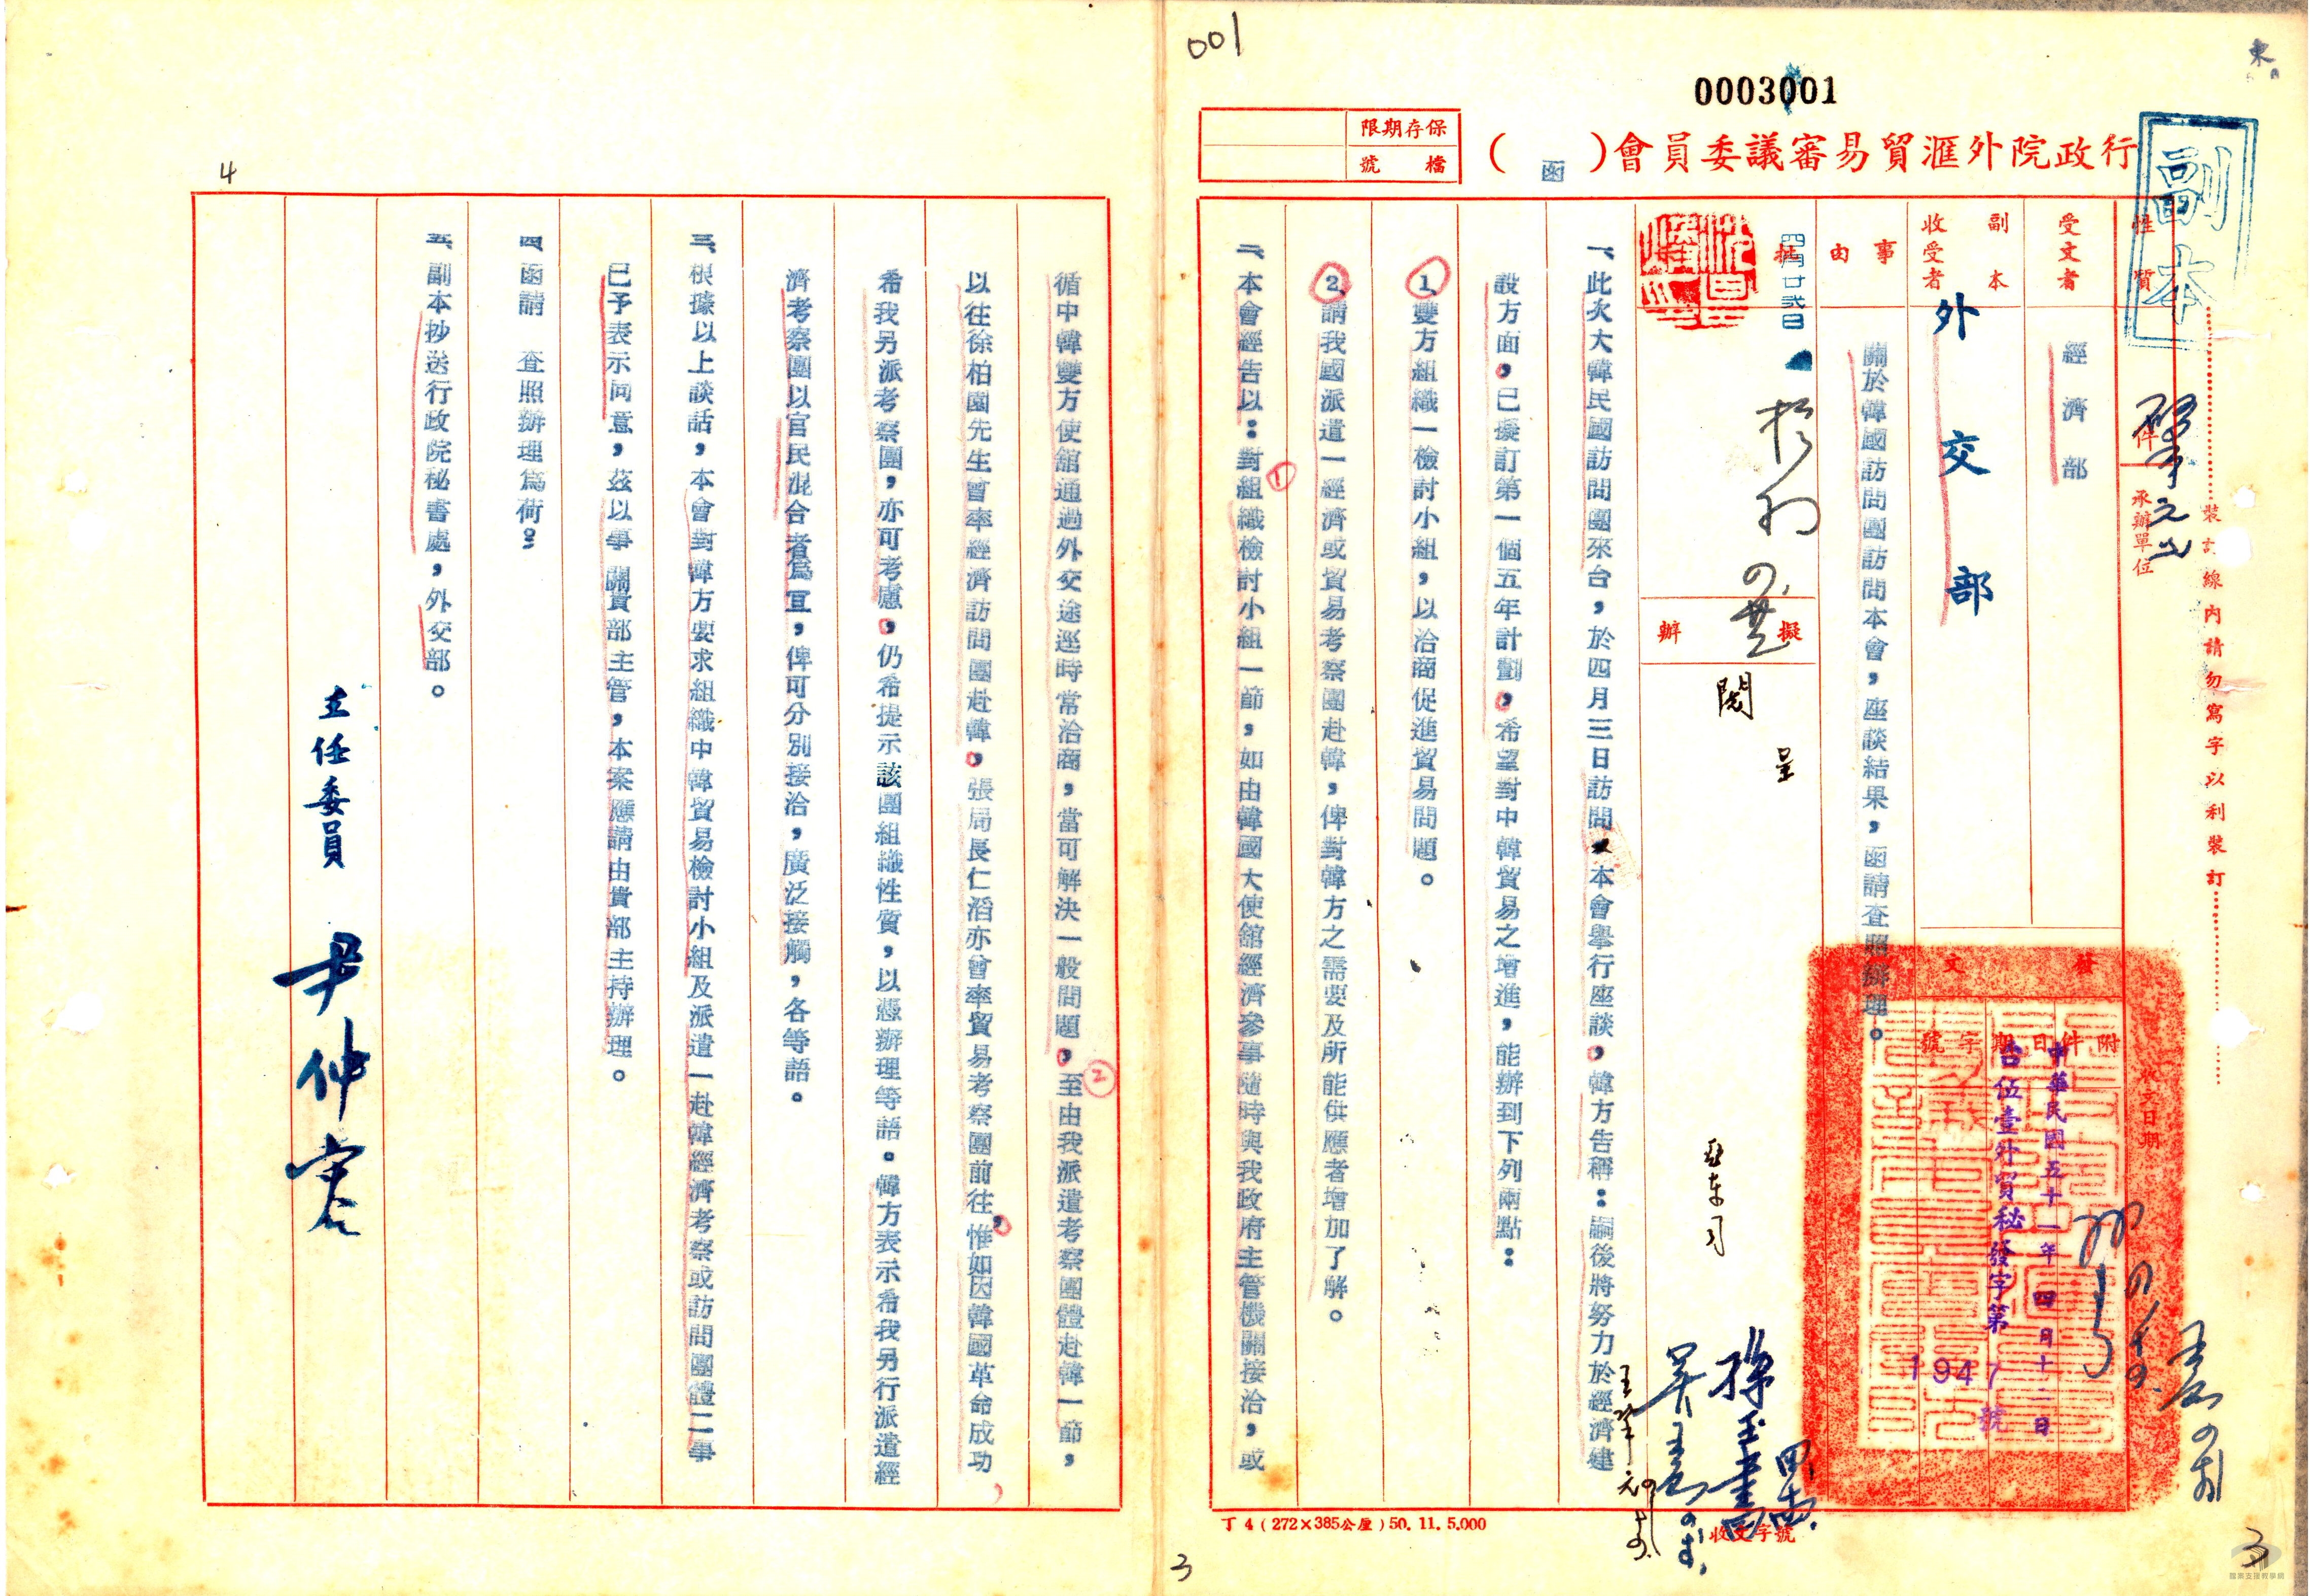 001
0003001
東
副本
行政院外滙貿易審議委員會(函)
保存期限
檔號
性質
受文者
經濟部
副本收受者
外交部
事由
關於韓國訪問團訪問本會，座談結果，函請查照辦理。
件
承辦單位
裝訂線內請勿寫字以利裝訂
發文
附件
日期
字號
中華民國五十一年四月十二日
台伍壹外貿秘發字第1947號
收文日期
批
四月廿弍日
擬辦
閱
呈
亞東司
一、此次大韓民國訪問團來台，於四月三日訪問本會舉行座談，韓方告稱：嗣後將努力於經濟建
設方面，已擬訂第一個五年計劃，希望對中韓貿易之增進，能辦到下列兩點：
1、雙方組織一檢討小組，以洽商促進貿易問題。
2、請我國派遣一經濟或貿易考察團赴韓，俾對韓方之需要及所能供應者增加了解。
二、本會經告以：對組織檢討小組一節，如由韓國大使館經濟參事隨時與我政府主管機關接洽，或
①
收文字號
丁4(272×385公厘)50.11.5.000
3
3
4
循中韓雙方使館通過外交途逕時常洽商，當可解決一般問題，至由我派遣考察團體赴韓一節，
②
以往徐柏園先生曾率經濟訪問團赴韓，張局長仁滔亦曾率貿易考察團前往，惟如因韓國革命成功
希我另派考察團，亦可考慮，仍希提示該團組織性質，以憑辦理等語。韓方表示希我另行派遣經
濟考察團以官民混合者爲宜，俾可分別接洽，廣泛接觸，各等語。
三、根據以上談話，本會對韓方要求組織中韓貿易檢討小組及派遣一赴韓經濟考察或訪問團體二事
已予表示同意，茲以事關貴部主管，本案應請由貴部主持辦理。
四、函請　查照辦理爲荷：
五、副本抄送行政院秘書處，外交部。
主任委員　尹仲容